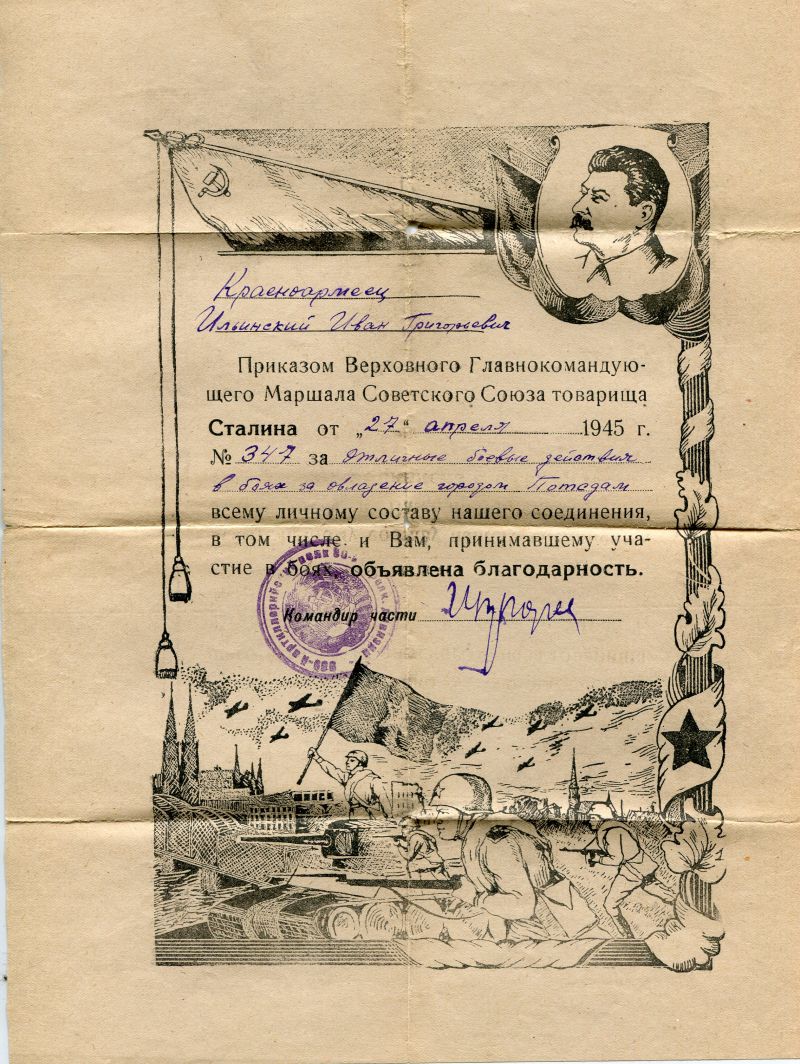 Красноармеец
Ильинский Иван Григорьевич
Приказом Верховного Главнокомандую-
щего Маршала Советского Союза товарища
Сталина от „27“ апреля 1945 г.
№ 347 за отличные боевые действия
в боях за овладение городом Потсдам
всему личному составу нашего соединения,
в том числе и Вам, принимавшему уча-
стие в боях, объявлена благодарность.
Командир части